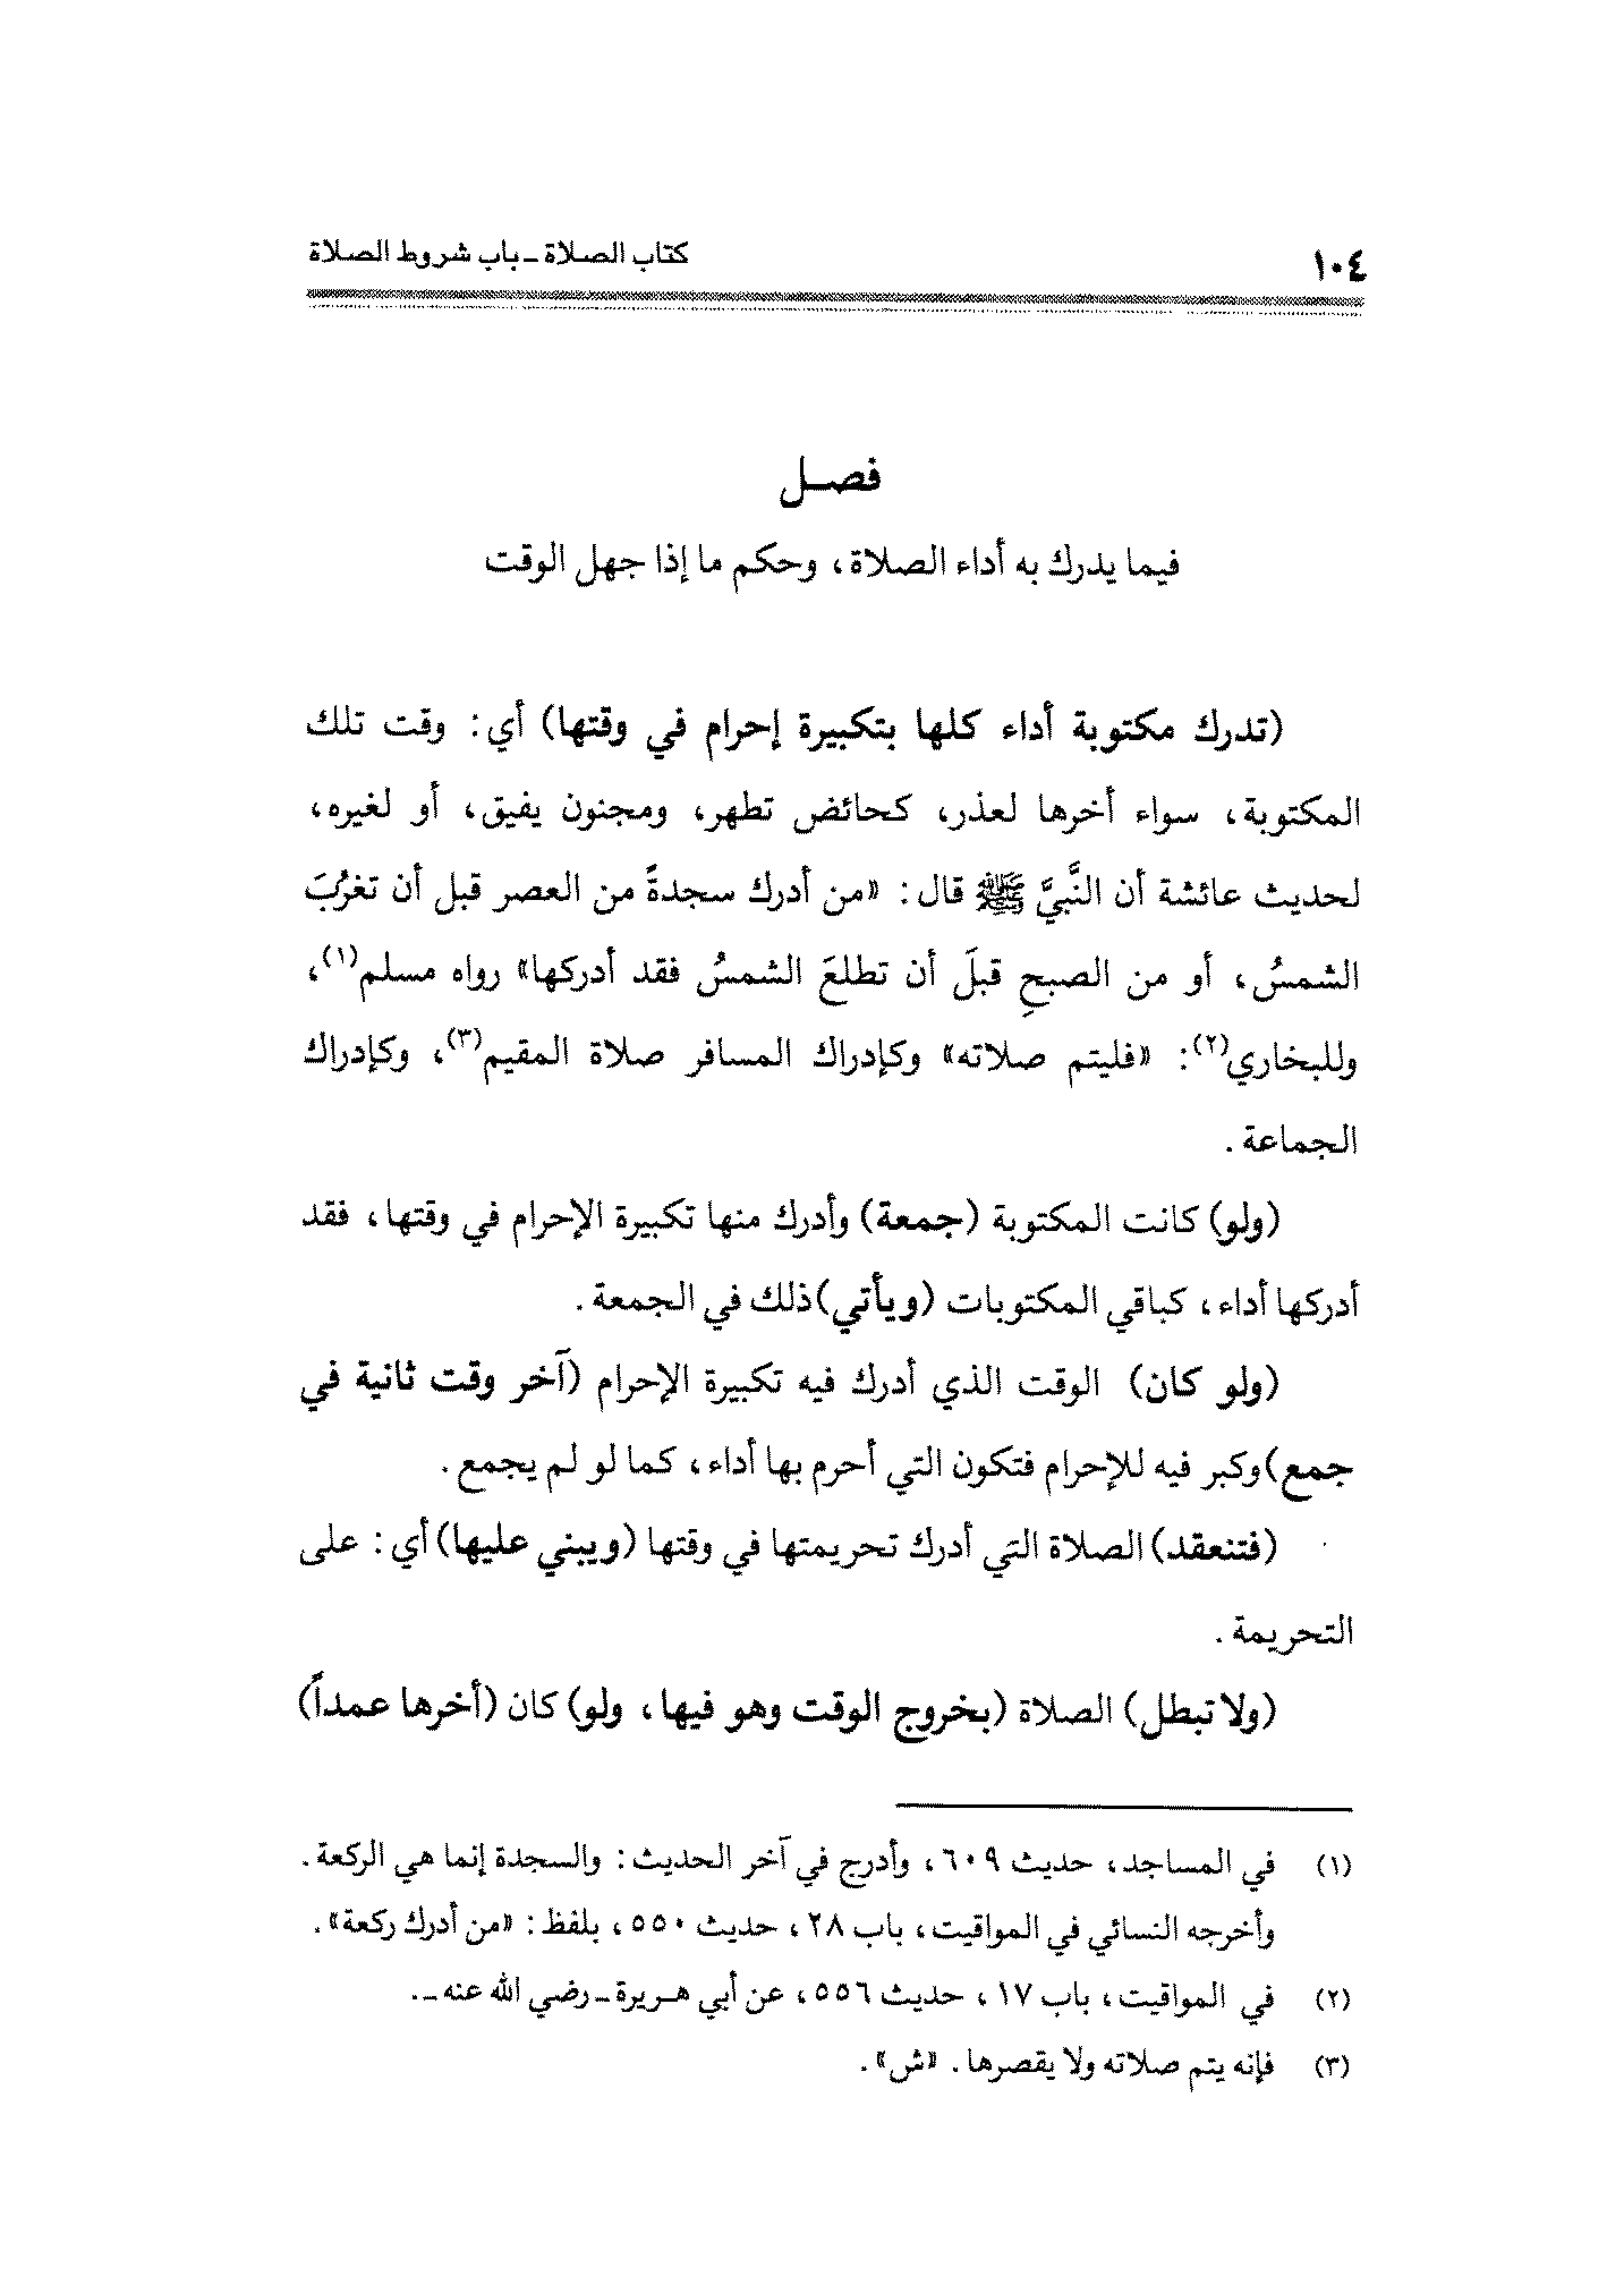 ١٠٤
كتاب الصلاة ـ باب شروط الصلاة
فصـل
فيما يدرك به أداء الصلاة، وحكم ما إذا جهل الوقت
(تدرك مكتوبة أداء كلها بتكبيرة إحرام في وقتها) أي: وقت تلك
المكتوبة، سواء أخرها لعذر، كحائض تطهر، ومجنون يفيق، أو لغيره،
لحديث عائشة أن النَّبيَّ ﷺ قال: «من أدرك سجدةً من العصر قبل أن تغرُبَ
الشمسُ، أو من الصبحِ قبلَ أن تطلعَ الشمسُ فقد أدركها» رواه مسلم(١)،
وللبخاري(٢): «فليتم صلاته» وكإدراك المسافر صلاة المقيم(٣)، وكإدراك
الجماعة.
(ولو) كانت المكتوبة (جمعة) وأدرك منها تكبيرة الإحرام في وقتها، فقد
أدركها أداء، كباقي المكتوبات (ويأتي) ذلك في الجمعة.
(ولو كان) الوقت الذي أدرك فيه تكبيرة الإحرام (آخر وقت ثانية في
جمع) وكبر فيه للإحرام فتكون التي أحرم بها أداء، كما لو لم يجمع.
(فتنعقد) الصلاة التي أدرك تحريمتها في وقتها (ويبني عليها) أي: على
التحريمة.
(ولا تبطل) الصلاة (بخروج الوقت وهو فيها، ولو) كان (أخرها عمداً)
(١) في المساجد، حديث ٦٠٩، وأدرج في آخر الحديث: والسجدة إنما هي الركعة.
وأخرجه النسائي في المواقيت، باب ٢٨، حديث ٥٥٠، بلفظ: «من أدرك ركعة».
(٢) في المواقيت، باب ١٧، حديث ٥٥٦، عن أبي هـريرة ـ رضي الله عنه ـ.
(٣) فإنه يتم صلاته ولا يقصرها. «ش».